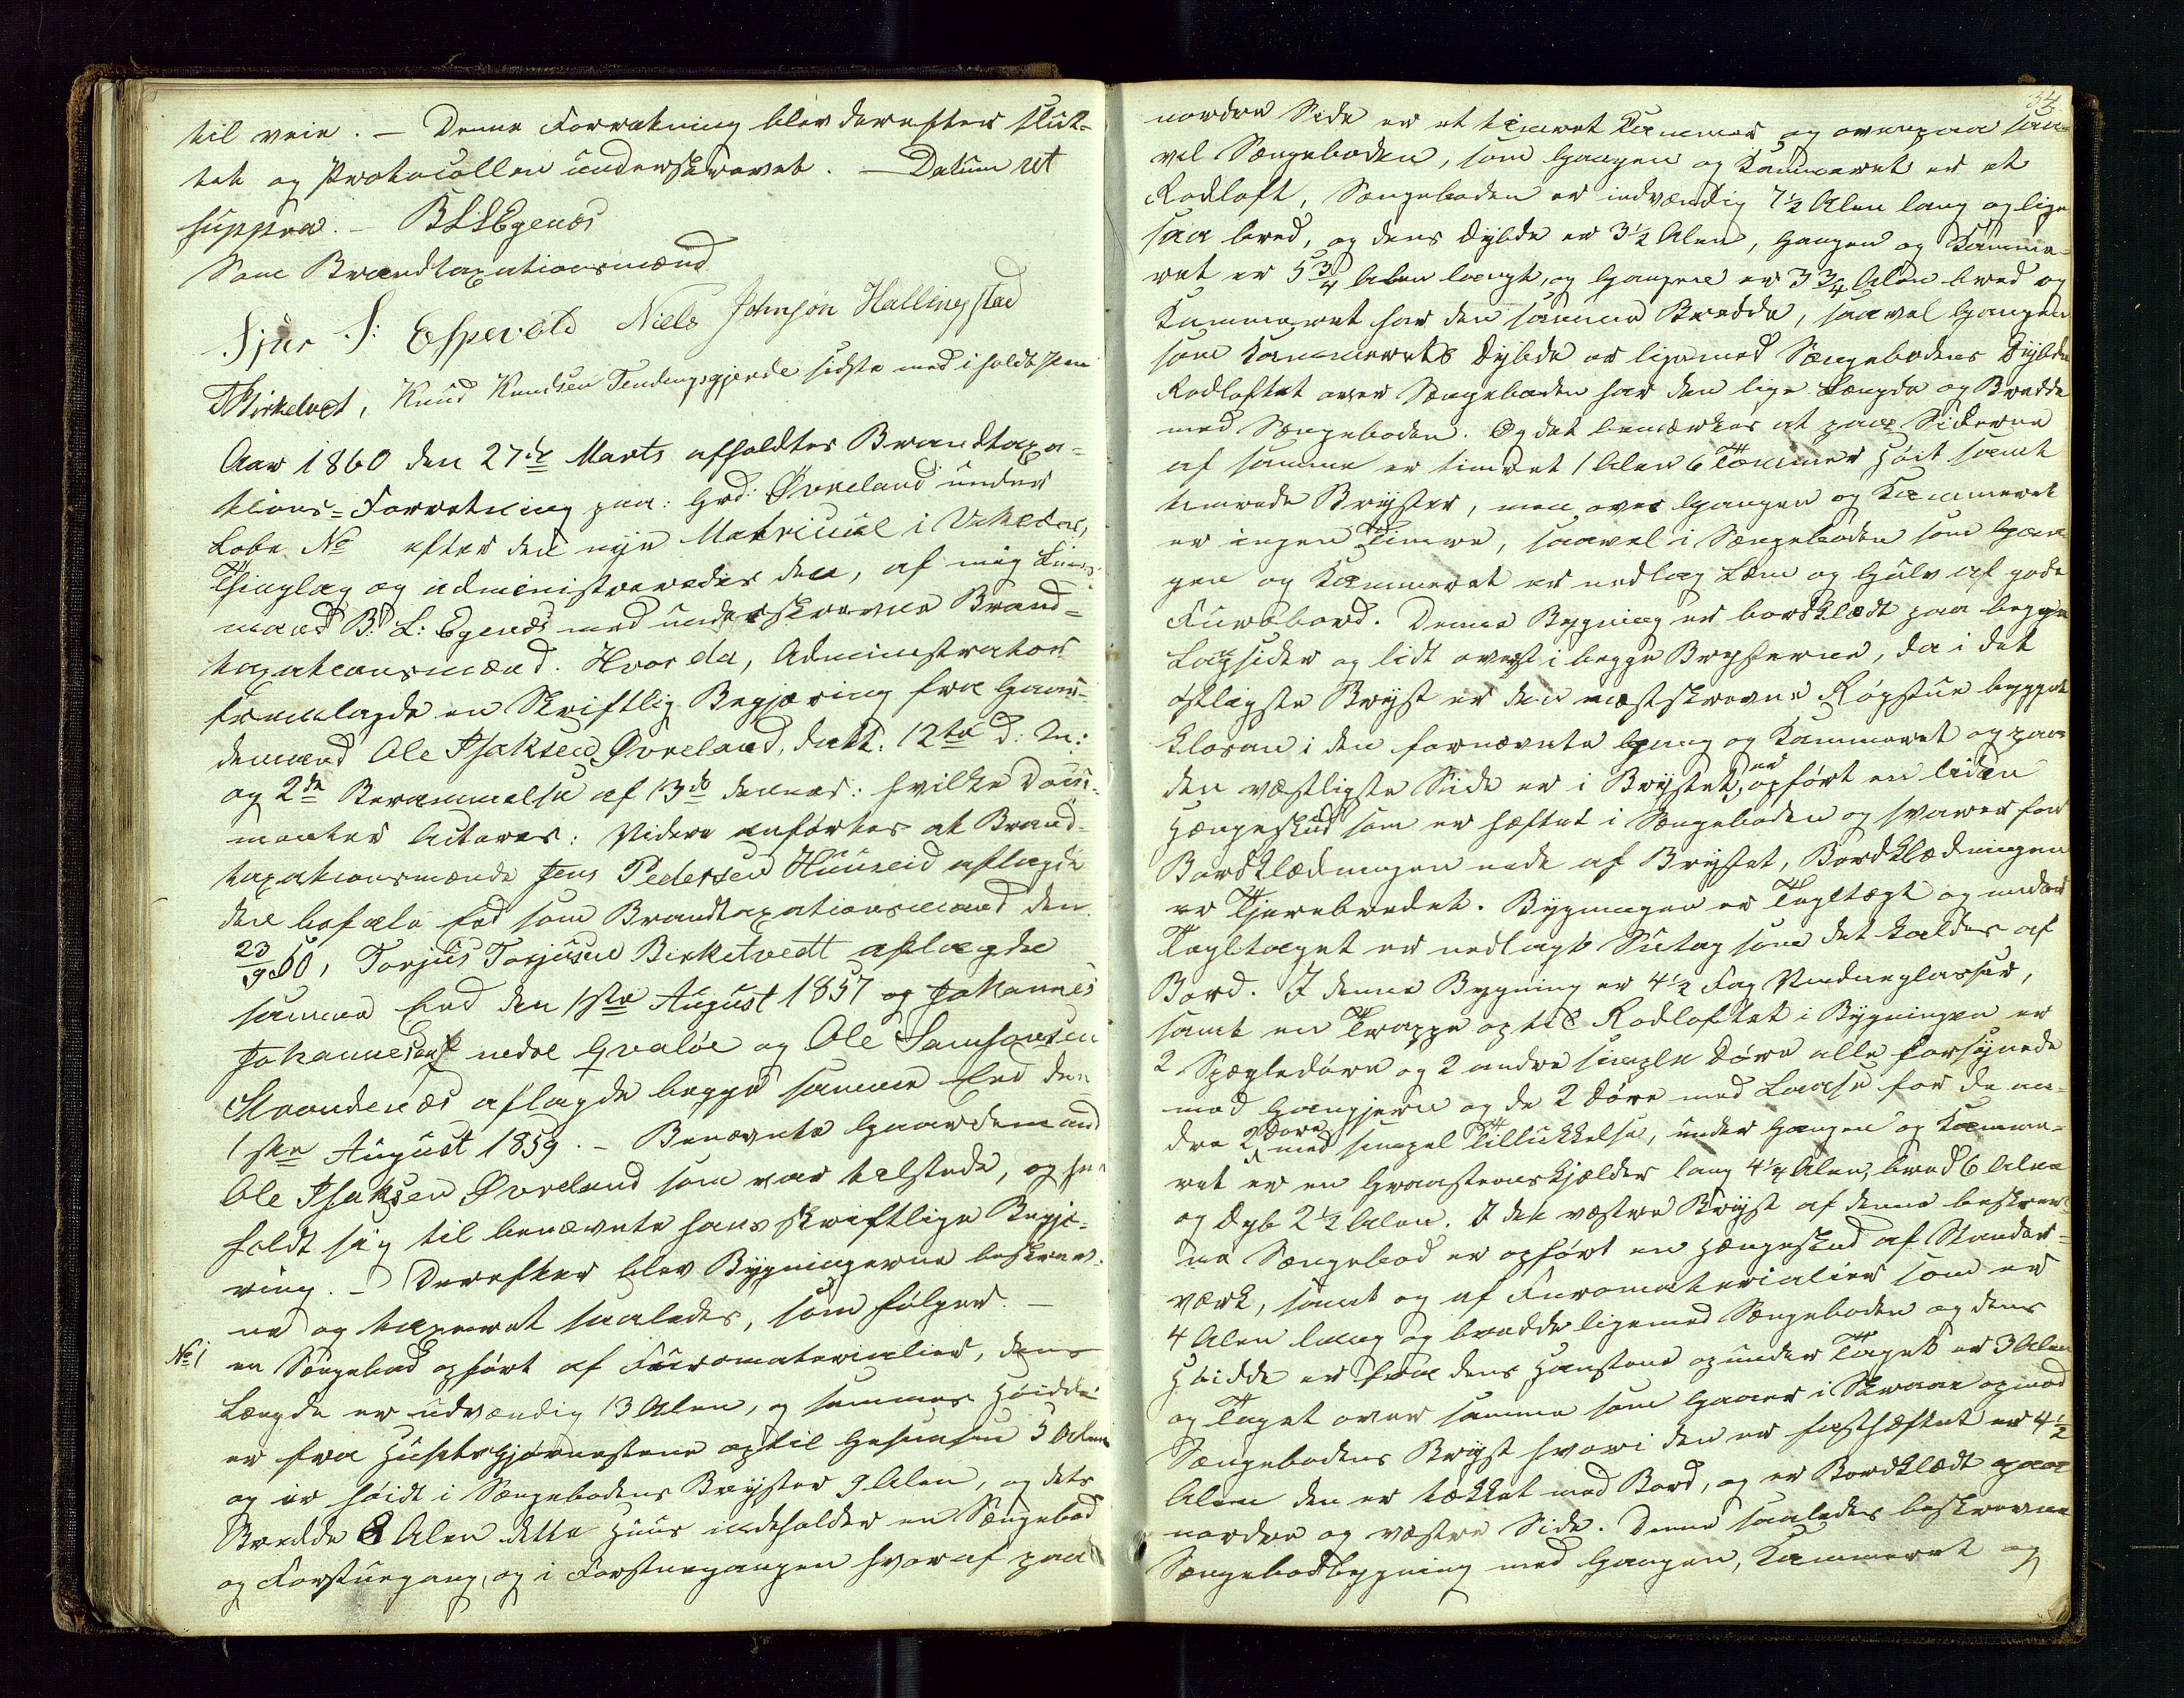 til veie. — Denne Forretning blev derefter slut-
tet og Protocollen underskrevet. — Datum ut
suppra. — B L L Egenæs
Som Brandtaxationsmænd
Sjur S: Espevold Niels Johnson Hallingstad
TBirkelvet, Knud Knudsen Tendengsgjerde sidste med i holdt Pen
Aar 1860 den 27de Marts afholdtes Brandtaxa-
tions-Forretning paa: Grd: Øvreland under
Løbe No efter den nye Matricul i Vikedals
Thinglag og administreredes den, af mig Lens-
mand B: L: Egenæs med underskrevne Brand-
taxationsmænd. Hvor da, Administrator
fremlagde en Skriftlig Begjæring fra Gaar-
demand Ole Isaksen Øvreland, datt. 12te d: M:
og 2de Berammelse af 13de dennes: hvilke Docu-
menter Acteres: Videre anførtes at Brand-
taxationsmænd Jens Pedersen Huuseid aflagde
den befalede Eed som Brandtaxationsmand den
23/9 50, Torjus Torjusen Birketvedt aflagde
samme Eed den 1ste August 1857 og Johannes
Johannesen nedre Qvaløe og Ole Samsonsen
Strandenæs aflagde begge samme Eed den
1ste August 1859. — Benævnte Gaardemand
Ole Isaksen Øvreland som var tilstede, og hen-
holdt sig til benævnte hans skriftlige Begjæ-
ring. — Derefter blev Bygningerne beskrev-
ne og taxeret saaledes, som følger. —
No 1 en Sængebod opført af Furematerialier, dens
Længde er udvændig 13 Alen, og sammes Høidde
er fra Hustsgjørnestene optil Gesimsen 5 Alen
og er høidt i Sængebodens Bryster 9 Alen, og dets
Bredde 8 Alen dette Huus indeholder en Sængebod
og Forstuegang, og i Forstuegangen hvoraf paa
34
nordre Side er et timret Kammer og ovenpaa saa-
vel Sængeboden, som Gangen og Kammeret er et
Rodloft, Sængeboden er indvændig 7½ Alen lang og lige
saa bred, og dens Dybde er 3½ Alen, Gangen og Kamme-
ret er 5¾ Alen langt, og Gangen er 3¾ Alen bred og
Kammeret har den samme Bredde, saavel Gangen
som Kammerets Dybde er ligemed Sængebodens Dybde
Rodloftet over Sængeboden har den lige Længde og Bredde
med Sængeboden. Og det bemærkes at paa Siderne
af samme er timret 1 Alen 6 Tommer Høit samt
timrede Bryster, men over Gangen og Kammeret
er ingen Timre, saavel i Sængeboden som Gan-
gen og Kammeret er nedlag Lem og Gulv af gode
Furebord. Denne Bygning er bordklædt paa begge
Langsider og lidt øverst i begge Brysterne, da i det
østligste Bryst er den næstskrevne Røgstue bygget
klosan i den fornævnte Gang og Kammeret og paa
den væstligste Side er i Brystet, er opført en liden
Hængeskud som er hæftet i Sængeboden og svarer for
Bordklædningen nede af Brystet, Bordklædningen
er Tjærebredet. Bygningen er Tagltægt og under
Tagltaget er nedlagt Sutag som det kaldes af
Bord. I denne Bygning er 4½ Fag Vinduglasser,
samt en Trappe op til Rodloftet i Bygningen er
2 Spægledøre og 2 andre simple Døre alle forsynede
med Gangjern og de 2 Døre med Laase for de an-
dre 2 Døre med simpel Tillukkelse, under Gangen og Kamme-
ret er en Graasteenskjælder lang 4¼ Alen, bred 6 Alen
og Dyb 2½ Alen. I det væstre Bryst af denne beskrev-
ne Sængebod er opført en Hængeskud af Stander-
værk, samt og af Furematerialier som er
4 Alen lang og bredde ligemed Sængeboden og dens
Høidde er fra dens Hanstone opunder Taget er 3 Alen
og Taget over samme som gaaer i Skraae opimod
Sængebodens Bryst hvori den er fasthæftet er 4½
Alen den er tækket med Bord, og er Bordklædt paa
nordre og væstre Side. Denne saaledes beskrevne
Sængebodbygning med Gangen, Kammeret og